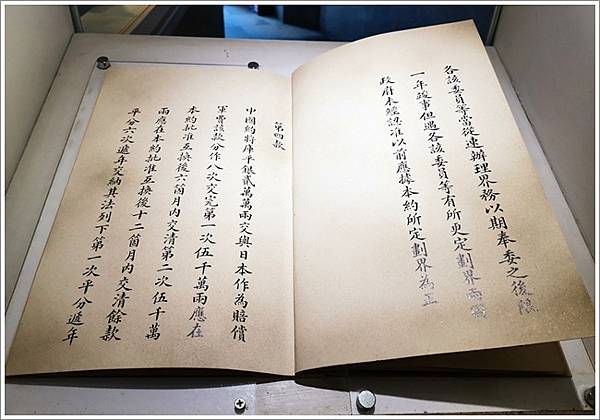 各該委員等當從速辦理界務以期奉委之後限
一年竣事但遇各該委員等有所更定劃界兩國
政府未經認准以前應據本約所定劃界為正
第四款
中國約將庫平銀貳萬萬兩交與日本作為賠償
軍費該款分作八次交完第一次伍千萬兩應在
本約批准互換後六箇月內交清第二次伍千萬
兩應在本約批准互換後十二箇月內交清餘款
平分六次遞年交納其法列下第一次平分遞年